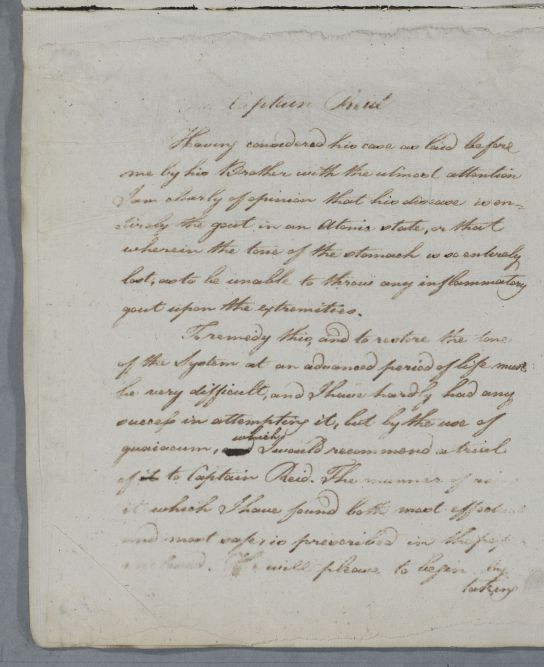 Captain Reid
Having considered his case as laid before
me by his Brother with the utmost attention
I am clearly of opinion that his disease is en-
tirely the gout in an Atonic state, or that
wherein the tone of the stomach is so entirely
lost, as to be unable to throw any inflammatory
gout upon the extremities.
To remedy this, and to restore the tone
of the System at an advanced period of life must
be very difficult, and I have hardly had any
success in attempting it, but by the use of
guaiacum, which I would recommend a trial
of it to Captain Reid. The manner of
it which I have found both most effectual
and most safe, is prescribed in the
will please to begin by
taking